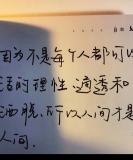 因为不是每个人都可以
活的理性、通透和
洒脱，所以人间才是
人间。